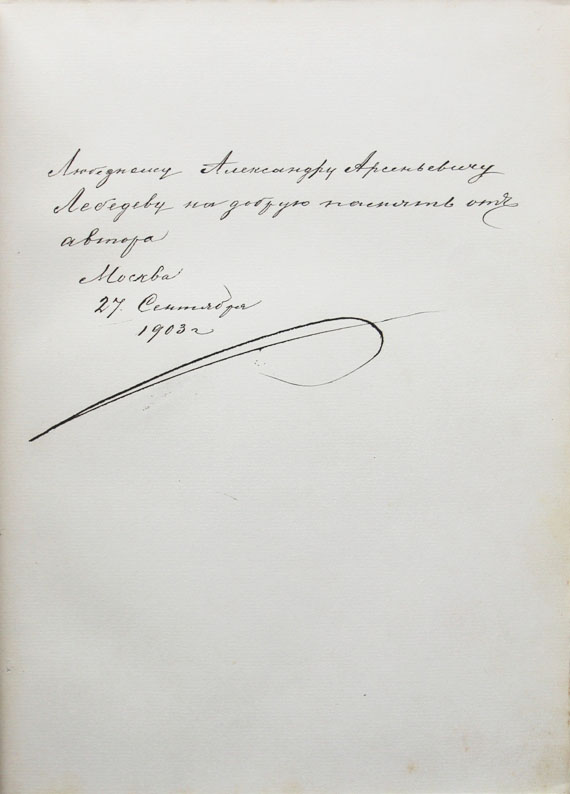 Любезному Александру Арсеньевичу
Лебедеву на добрую память отъ
автора
Москва
27 Сентября
1903 г